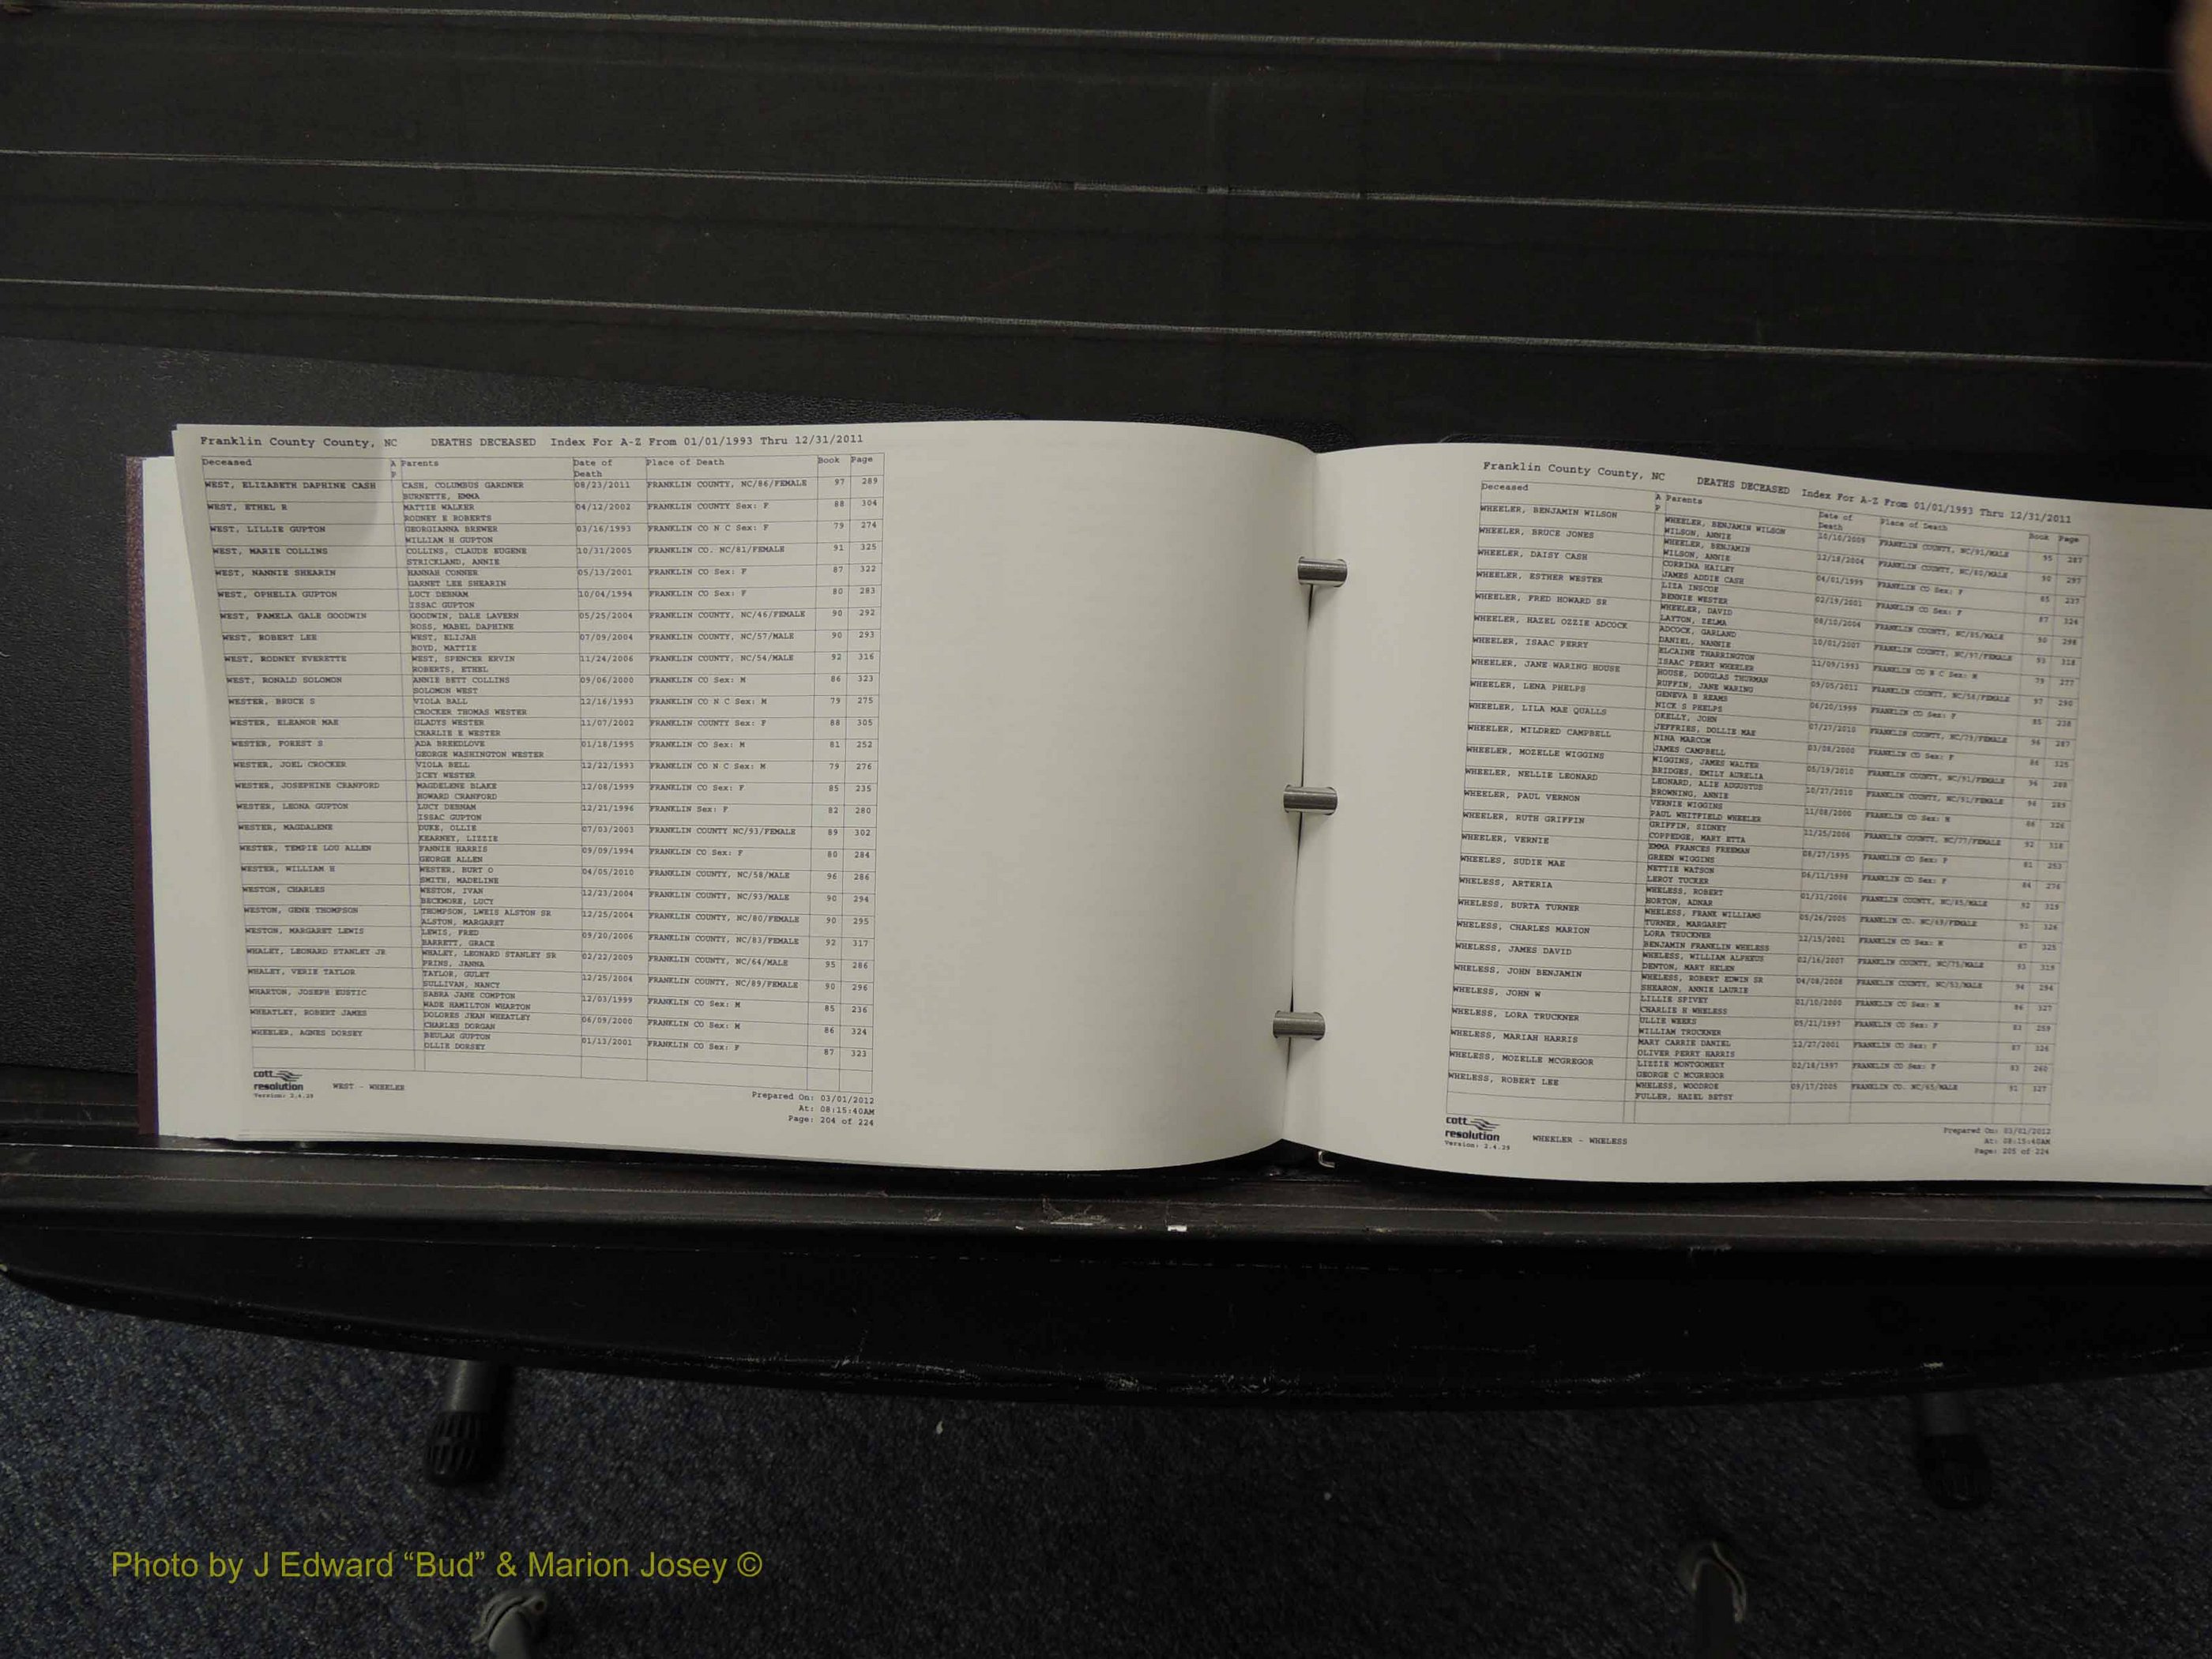 Franklin County County, NC DEATHS DECEASED Index For A-Z From 01/01/1993 Thru 12/31/2011
Deceased A P Parents Date of Death Place of Death Book Page
WEST, ELIZABETH DAPHINE CASH CASH, COLUMBUS GARDNER 08/23/2011 FRANKLIN COUNTY, NC/86/FEMALE 97 289
BURNETTE, EMMA
WEST, ETHEL R MATTIE WALKER 04/12/2002 FRANKLIN COUNTY Sex: F 88 304
RODNEY E ROBERTS
WEST, LILLIE GUPTON GEORGIANNA BREWER 03/16/1993 FRANKLIN CO N C Sex: F 79 274
WILLIAM H GUPTON
WEST, MARIE COLLINS COLLINS, CLAUDE EUGENE 10/31/2005 FRANKLIN CO. NC/81/FEMALE 91 325
STRICKLAND, ANNIE
WEST, NANNIE SHEARIN HANNAH CONNER 05/13/2001 FRANKLIN CO Sex: F 87 322
GARNET LEE SHEARIN
WEST, OPHELIA GUPTON LUCY DENHAM 10/04/1994 FRANKLIN CO Sex: F 80 283
ISSAC GUPTON
WEST, PAMELA GALE GOODWIN GOODWIN, DALE LAVERN 05/25/2004 FRANKLIN COUNTY, NC/46/FEMALE 90 292
ROSS, MABEL DAPHINE
WEST, ROBERT LEE WEST, ELIJAH 07/09/2004 FRANKLIN COUNTY, NC/57/MALE 90 293
BOYD, MATTIE
WEST, RODNEY EVERETTE WEST, SPENCER ERVIN 11/24/2006 FRANKLIN COUNTY, NC/54/MALE 92 316
ROBERTS, ETHEL
WEST, RONALD SOLOMON ANNIE BETT COLLINS 09/06/2000 FRANKLIN CO Sex: M 86 323
SOLOMON WEST
WESTER, BRUCE S VIOLA BALL 12/16/1993 FRANKLIN CO N C Sex: M 79 275
CROCKER THOMAS WESTER
WESTER, ELEANOR MAE GLADYS WESTER 11/07/2002 FRANKLIN COUNTY Sex: F 88 305
CHARLIE E WESTER
WESTER, FOREST S ADA BREEDLOVE 01/18/1995 FRANKLIN CO Sex: M 81 252
GEORGE WASHINGTON WESTER
WESTER, JOEL CROCKER VIOLA BELL 12/22/1993 FRANKLIN CO N C Sex: M 79 276
ICEY WESTER
WESTER, JOSEPHINE CRANFORD MAGDELENE BLAKE 12/08/1999 FRANKLIN CO Sex: F 85 235
HOWARD CRANFORD
WESTER, LEONA GUPTON LUCY DENHAM 12/21/1996 FRANKLIN Sex: F 82 280
ISSAC GUPTON
WESTER, MAGDALENE DUKE, OLLIE 07/03/2003 FRANKLIN COUNTY NC/93/FEMALE 89 302
KEARNEY, LIZZIE
WESTER, TEMPIE LOU ALLEN FANNIE HARRIS 09/09/1994 FRANKLIN CO Sex: F 80 284
GEORGE ALLEN
WESTER, WILLIAM H WESTER, BURT O 04/05/2010 FRANKLIN COUNTY, NC/58/MALE 96 286
SMITH, MADELINE
WESTON, CHARLES WESTON, IVAN 12/23/2004 FRANKLIN COUNTY, NC/93/MALE 90 294
BECKMORE, LUCY
WESTON, GENE THOMPSON THOMPSON, LWEIS ALSTON SR 12/25/2004 FRANKLIN COUNTY, NC/80/FEMALE 90 295
ALSTON, MARGARET
WESTON, MARGARET LEWIS LEWIS, FRED 09/20/2006 FRANKLIN COUNTY, NC/83/FEMALE 92 317
BARRETT, GRACE
WHALEY, LEONARD STANLEY JR WHALEY, LEONARD STANLEY SR 02/22/2009 FRANKLIN COUNTY, NC/64/MALE 95 286
PRINS, JANNA
WHALEY, VERIE TAYLOR TAYLOR, GULEY 12/25/2004 FRANKLIN COUNTY, NC/89/FEMALE 90 296
SULLIVAN, NANCY
WHARTON, JOSEPH EUSTIC SABRA JANE COMPTON 12/03/1999 FRANKLIN CO Sex: M 85 236
WADE HAMILTON WHARTON
WHEATLEY, ROBERT JAMES DOLORES JEAN WHEATLEY 06/09/2000 FRANKLIN CO Sex: M 86 324
CHARLES DORGAN
WHEELER, AGNES DORSEY BEULAH GUPTON 01/13/2001 FRANKLIN CO Sex: F 87 323
OLLIE DORSEY
cott
resolution WEST - WHEELER
Version: 2.4.29
Prepared On: 03/01/2012
At: 08:15:40AM
Page: 204 of 224
Franklin County County, NC DEATHS DECEASED Index For A-Z From 01/01/1993 Thru 12/31/2011
Deceased A P Parents Date of Death Place of Death Book Page
WHEELER, BENJAMIN WILSON WHEELER, BENJAMIN WILSON 10/10/2009 FRANKLIN COUNTY, NC/91/MALE 95 287
WILSON, ANNIE
WHEELER, BRUCE JONES WHEELER, BENJAMIN 12/18/2004 FRANKLIN COUNTY, NC/80/MALE 90 297
WILSON, ANNIE
WHEELER, DAISY CASH CORRINA HAILEY 04/01/1999 FRANKLIN CO Sex: F 85 237
JAMES ADDIE CASH
WHEELER, ESTHER WESTER LIZA INSCOE 02/19/2001 FRANKLIN CO Sex: F 87 324
BENNIE WESTER
WHEELER, FRED HOWARD SR WHEELER, DAVID 08/10/2004 FRANKLIN COUNTY, NC/85/MALE 90 298
LAYTON, ZELMA
WHEELER, HAZEL OZZIE ADCOCK ADCOCK, GARLAND 10/01/2007 FRANKLIN COUNTY, NC/97/FEMALE 93 318
DANIEL, NANNIE
WHEELER, ISAAC PERRY ELCAINE THARRINGTON 11/09/1993 FRANKLIN CO N C Sex: M 79 277
ISAAC PERRY WHEELER
WHEELER, JANE WARING HOUSE HOUSE, DOUGLAS THURMAN 09/05/2011 FRANKLIN COUNTY, NC/58/FEMALE 97 290
RUFFIN, JANE WARING
WHEELER, LENA PHELPS GENEVA B REAMS 06/20/1999 FRANKLIN CO Sex: F 85 238
NICK S PHELPS
WHEELER, LILA MAE QUALLS OKELLY, JOHN 07/27/2010 FRANKLIN COUNTY, NC/79/FEMALE 96 287
JEFFRIES, DOLLIE MAE
WHEELER, MILDRED CAMPBELL NINA MARCOM 03/08/2000 FRANKLIN CO Sex: F 86 325
JAMES CAMPBELL
WHEELER, MOZELLE WIGGINS WIGGINS, JAMES WALTER 05/19/2010 FRANKLIN COUNTY, NC/91/FEMALE 96 288
BRIDGES, EMILY AURELIA
WHEELER, NELLIE LEONARD LEONARD, ALIE AUGUSTUS 10/27/2010 FRANKLIN COUNTY, NC/91/FEMALE 96 289
BROWNING, ANNIE
WHEELER, PAUL VERNON VERNIE WIGGINS 11/08/2000 FRANKLIN CO Sex: M 86 326
PAUL WHITFIELD WHEELER
WHEELER, RUTH GRIFFIN GRIFFIN, SIDNEY 11/25/2006 FRANKLIN COUNTY, NC/77/FEMALE 92 318
COPPEDGE, MARY ETTA
WHEELER, VERNIE EMMA FRANCES FREEMAN 08/27/1995 FRANKLIN CO Sex: F 81 253
GREEN WIGGINS
WHEELES, SUDIE MAE NETTIE WATSON 06/11/1998 FRANKLIN CO Sex: F 84 276
LEROY TUCKER
WHELESS, ARTERIA WHELESS, ROBERT 01/31/2006 FRANKLIN COUNTY, NC/85/MALE 92 319
HORTON, ADNAR
WHELESS, BURTA TURNER WHELESS, FRANK WILLIAMS 05/26/2005 FRANKLIN CO. NC/69/FEMALE 91 326
TURNER, MARGARET
WHELESS, CHARLES MARION LORA TRUCKNER 12/15/2001 FRANKLIN CO Sex: M 87 325
BENJAMIN FRANKLIN WHELESS
WHELESS, JAMES DAVID WHELESS, WILLIAM ALPHEUS 02/16/2007 FRANKLIN COUNTY, NC/75/MALE 93 319
DENTON, MARY HELEN
WHELESS, JOHN BENJAMIN WHELESS, ROBERT EDWIN SR 04/08/2008 FRANKLIN COUNTY, NC/53/MALE 94 294
SHEARON, ANNIE LAURIE
WHELESS, JOHN W LILLIE SPIVEY 01/10/2000 FRANKLIN CO Sex: M 86 327
CHARLIE H WHELESS
WHELESS, LORA TRUCKNER OLLIE WEEKS 05/21/1997 FRANKLIN CO Sex: F 83 259
WILLIAM TRUCKNER
WHELESS, MARIAH HARRIS MARY CARRIE DANIEL 12/27/2001 FRANKLIN CO Sex: F 87 326
OLIVER PERRY HARRIS
WHELESS, MOZELLE MCGREGOR LIZZIE MONTGOMERY 02/18/1997 FRANKLIN CO Sex: F 83 260
GEORGE C MCGREGOR
WHELESS, ROBERT LEE WHELESS, WOODROE 09/17/2005 FRANKLIN CO. NC/65/MALE 91 327
FULLER, HAZEL BETSY
cott
resolution WHEELER - WHELESS
Version: 2.4.29
Prepared On: 03/01/2012
At: 08:15:40AM
Page: 205 of 224
Photo by J Edward “Bud” & Marion Josey ©